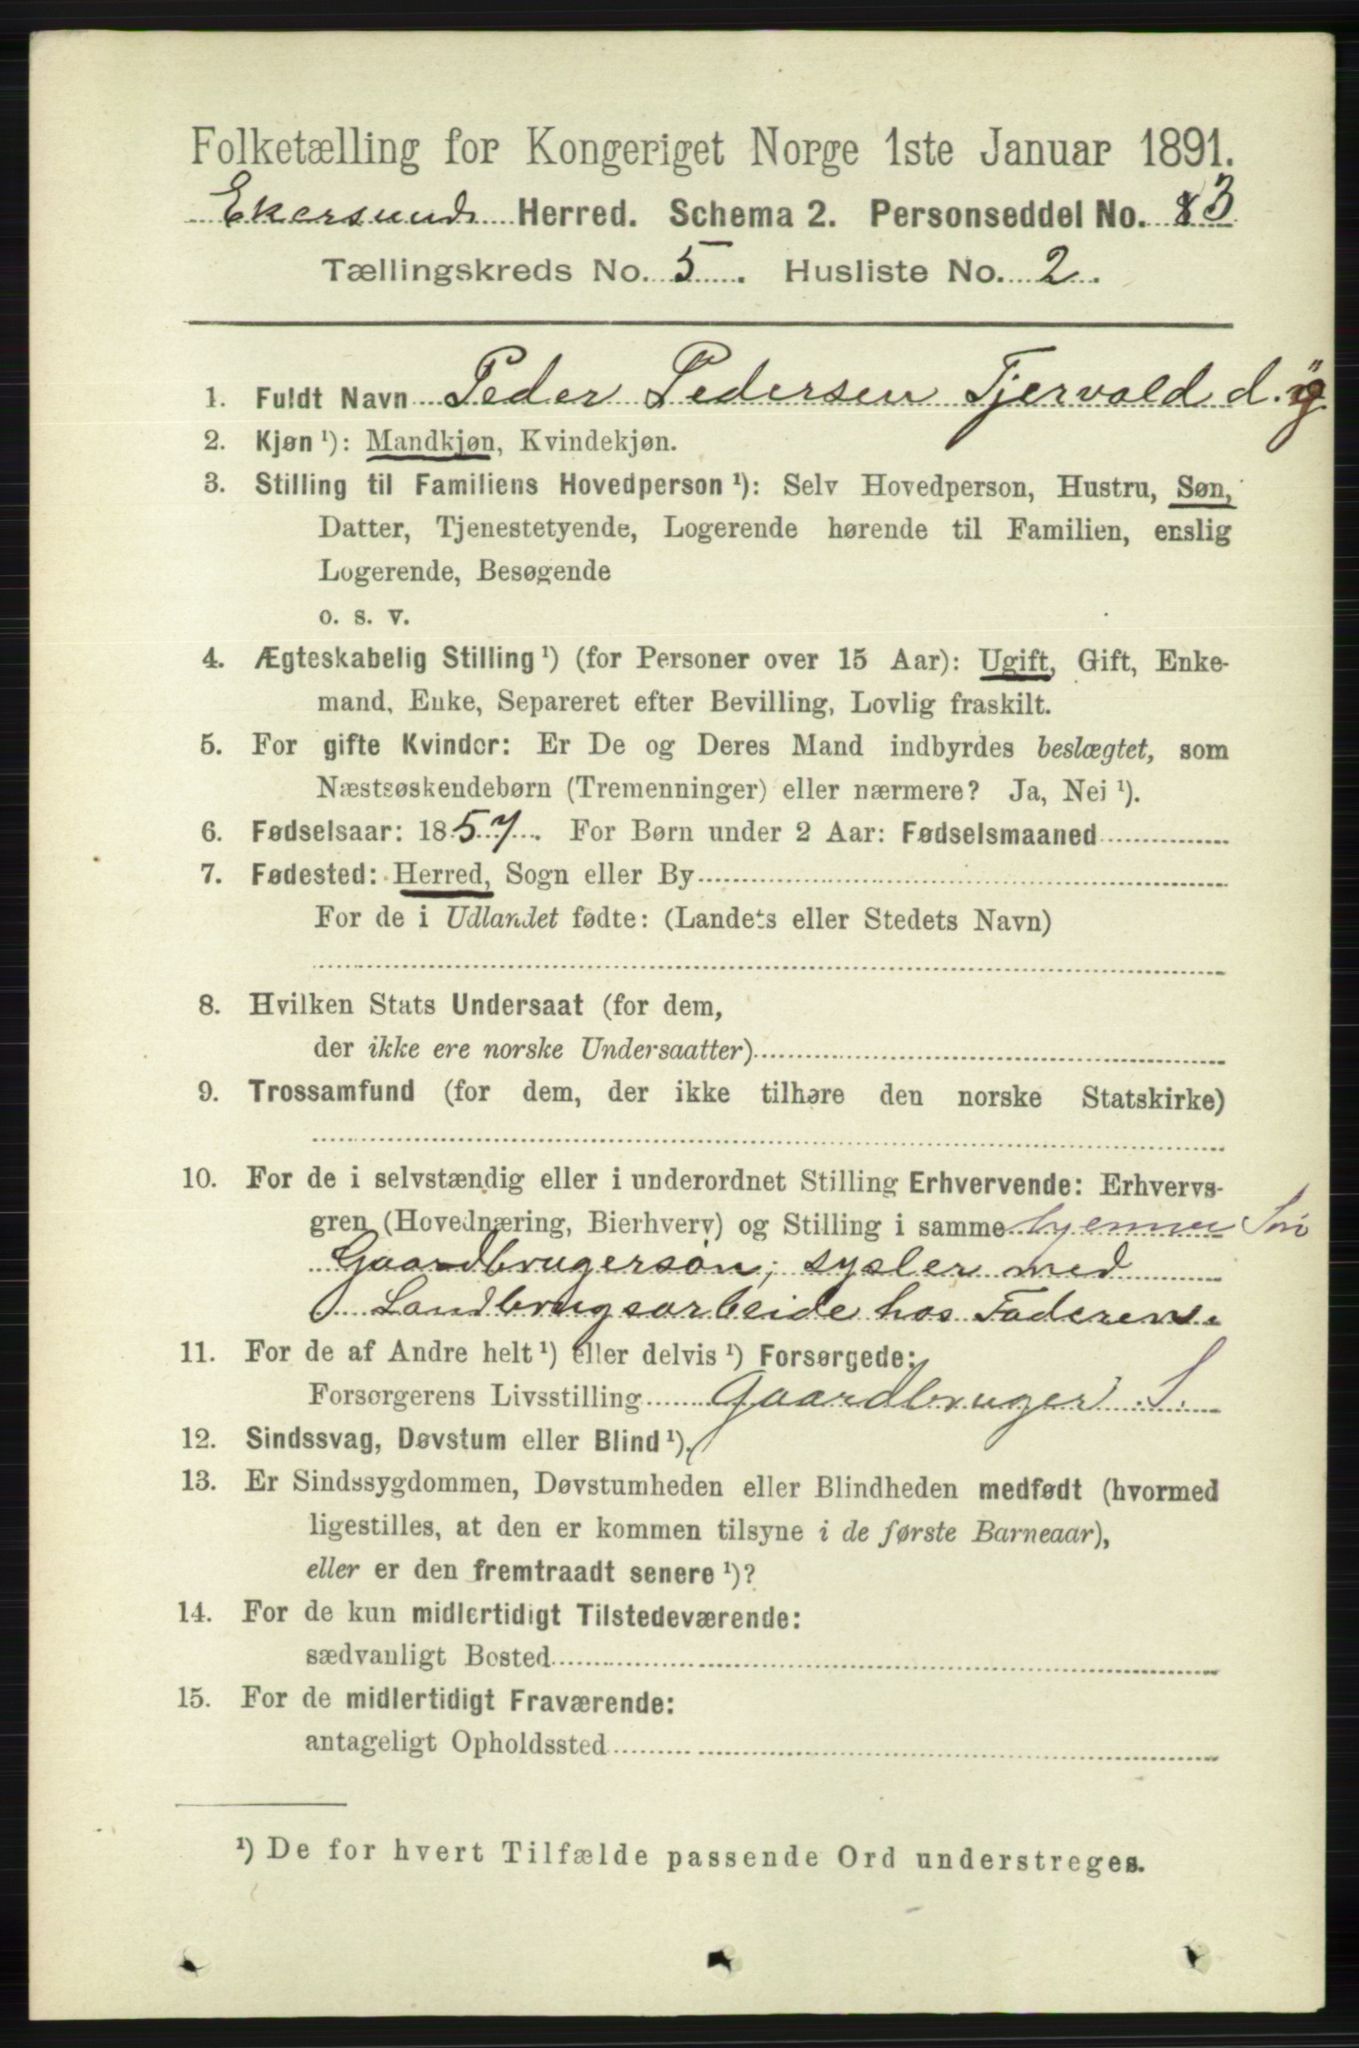 Folketælling for Kongeriget Norge 1ste Januar 1891.
Ekersunds Herred. Schema 2. Personseddel No. 3
Tællingskreds No. 5. Husliste No. 2.
1. Fuldt Navn Peder Pedersen Tjervold d. y.
2. Kjøn ¹): Mandkjøn, Kvindekjøn.
3. Stilling til Familiens Hovedperson ¹): Selv Hovedperson, Hustru, Søn,
Datter, Tjenestetyende, Logerende hørende til Familien, enslig
Logerende, Besøgende
o. s. v.
4. Ægteskabelig Stilling ¹) (for Personer over 15 Aar): Ugift, Gift, Enke-
mand, Enke, Separeret efter Bevilling, Lovlig fraskilt.
5. For gifte Kvinder: Er De og Deres Mand indbyrdes beslægtet, som
Næstsøskendebørn (Tremenninger) eller nærmere? Ja, Nei ¹).
6. Fødselsaar: 1857. For Børn under 2 Aar: Fødselsmaaned
7. Fødested: Herred, Sogn eller By
For de i Udlandet fødte: (Landets eller Stedets Navn)
8. Hvilken Stats Undersaat (for dem,
der ikke ere norske Undersaatter)
9. Trossamfund (for dem, der ikke tilhøre den norske Statskirke)
10. For de i selvstændig eller i underordnet Stilling Erhvervende: Erhvervs-
gren (Hovednæring, Bierhverv) og Stilling i samme hjemmev
Gaardbrugersøn; sysler med
Landbrugsarbeide hos Faderen.
11. For de af Andre helt ¹) eller delvis ¹) Forsørgede:
Forsørgerens Livsstilling Gaardbruger S.
12. Sindssvag, Døvstum eller Blind ¹).
13. Er Sindssygdommen, Døvstumheden eller Blindheden medfødt (hvormed
ligestilles, at den er kommen tilsyne i de første Barneaar),
eller er den fremtraadt senere ¹)?
14. For de kun midlertidigt Tilstedeværende:
sædvanligt Bosted
15. For de midlertidigt Fraværende:
antageligt Opholdssted
¹) De for hvert Tilfælde passende Ord understreges.